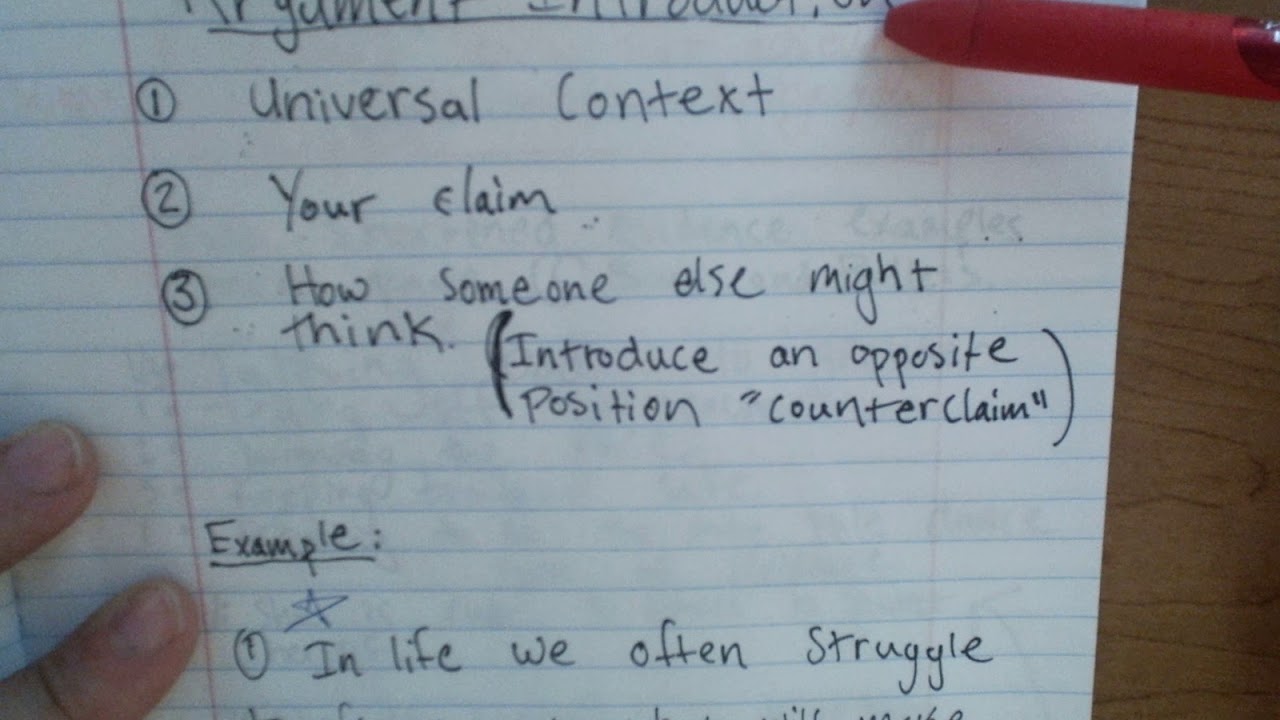 Argument Introduction
① Universal Context
② Your claim
③ How someone else might
think. (Introduce an opposite
Position "counterclaim")
Example:
① In life we often struggle